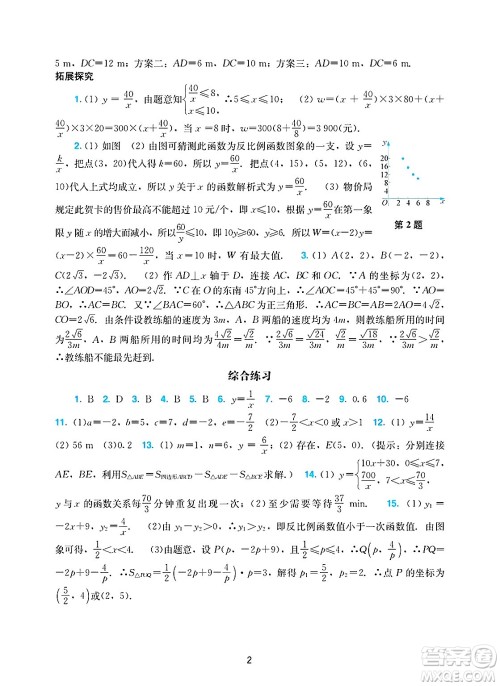 5 m，DC＝12 m；方案二：AD＝6 m，DC＝10 m；方案三：AD＝10 m，DC＝6 m.
拓展探究
1.（1）y＝40/x，由题意知{40/x≤8，40/x≤10，∴5≤x≤10　（2）w＝(x＋40/x)×3×80＋(x＋
40/x)×3×20＝300(x＋40/x)，当 x＝8时，w＝300(8＋40/8)＝3 900(元)
2.（1）如图　（2）由图可猜测此函数为反比例函数图象的一支，设 y＝
k/x. 把点(3，20)代入得 k＝60，所以 y＝60/x. 把点(4，15)，(5，12)，(6，
10)代入上式均成立，所以 y 关于 x 的函数解析式为 y＝60/x　（3）物价局
规定此贺卡的售价最高不能超过10元/个，而 y＝60/x 在第一象限
y 随 x 的增大而减小，所以，即 10y≥60，y≥6. 所以 W＝(x－2)y＝
(x－2)×60/x＝60－120/x，当 x＝10时，W 有最大值.　3.（1）A(2，2)，B(－2，－2)，
C(2√3，－2√3)　（2）作 AD⊥x 轴于 D，连接 AC，BC 和 OC. ∵A 的坐标为(2，2)，
∴∠AOD＝45°，AO＝2√2. ∵C 在 O 的东南45°方向上，∴∠AOC＝45°＋45°＝90°. ∵AO＝
BO，∴AC＝BC. 又∵∠BAC＝60°，∴△ABC为正三角形. ∴AC＝BC＝AB＝2AO＝4√2.
CO＝2√6. 由条件设教练船的速度为3m，A，B 两船的速度均为4m，则教练船所用的时间为
2√6/3m，A，B 两船所用的时间均为4√2/4m＝√2/m. ∵2√6/3m＝√24/3m，√2/m＝√18/3m，∴2√6/3m＞√2/m.
∴教练船不能最先赶到.
综合练习
1. B　2. D　3. B　4. C　5. B　6. y＝1/x　7. －6　8. －2　9. 0.6　10. －6
11.（1）a＝－2，k＝－2　（2）－1/2＜x＜0　或 x＞4　12.（1）y＝4/x
（2）56 m　（3）0.2　13.（1）m＝1，n＝6，y＝6/x　（2）存在，E(5，0).（提示：分别连接
AE，BE，利用S△ABE＝S四边形ABCD－S△ADE－S△BCE求解.）　14.（1）y＝{10x＋30，700/x，
y 与 x 的函数关系每70/3分钟重复出现一次　（2）等待37/3 min.　15.（1）y₁＝
－2x＋9，y₂＝4/x　（2）y₁－y₂＞0，即反比例函数值小于一次函数值. 由图
象可得，1/2＜x＜4　（3）由题意，设 P(p，－2p＋9)且1/2＜p＜4. ∴Q(p，4/p)，∴PQ＝
－2p＋9－4/p. ∴S△POQ＝1/2(－2p＋9－4/p)·p＝3，解得 p₁＝5/2，p₂＝2. ∴点 P 的坐标为
(5/2，4)或(2，5).
y
20
16
12
8
4
O 2 4 6 8 x
第 2 题
2